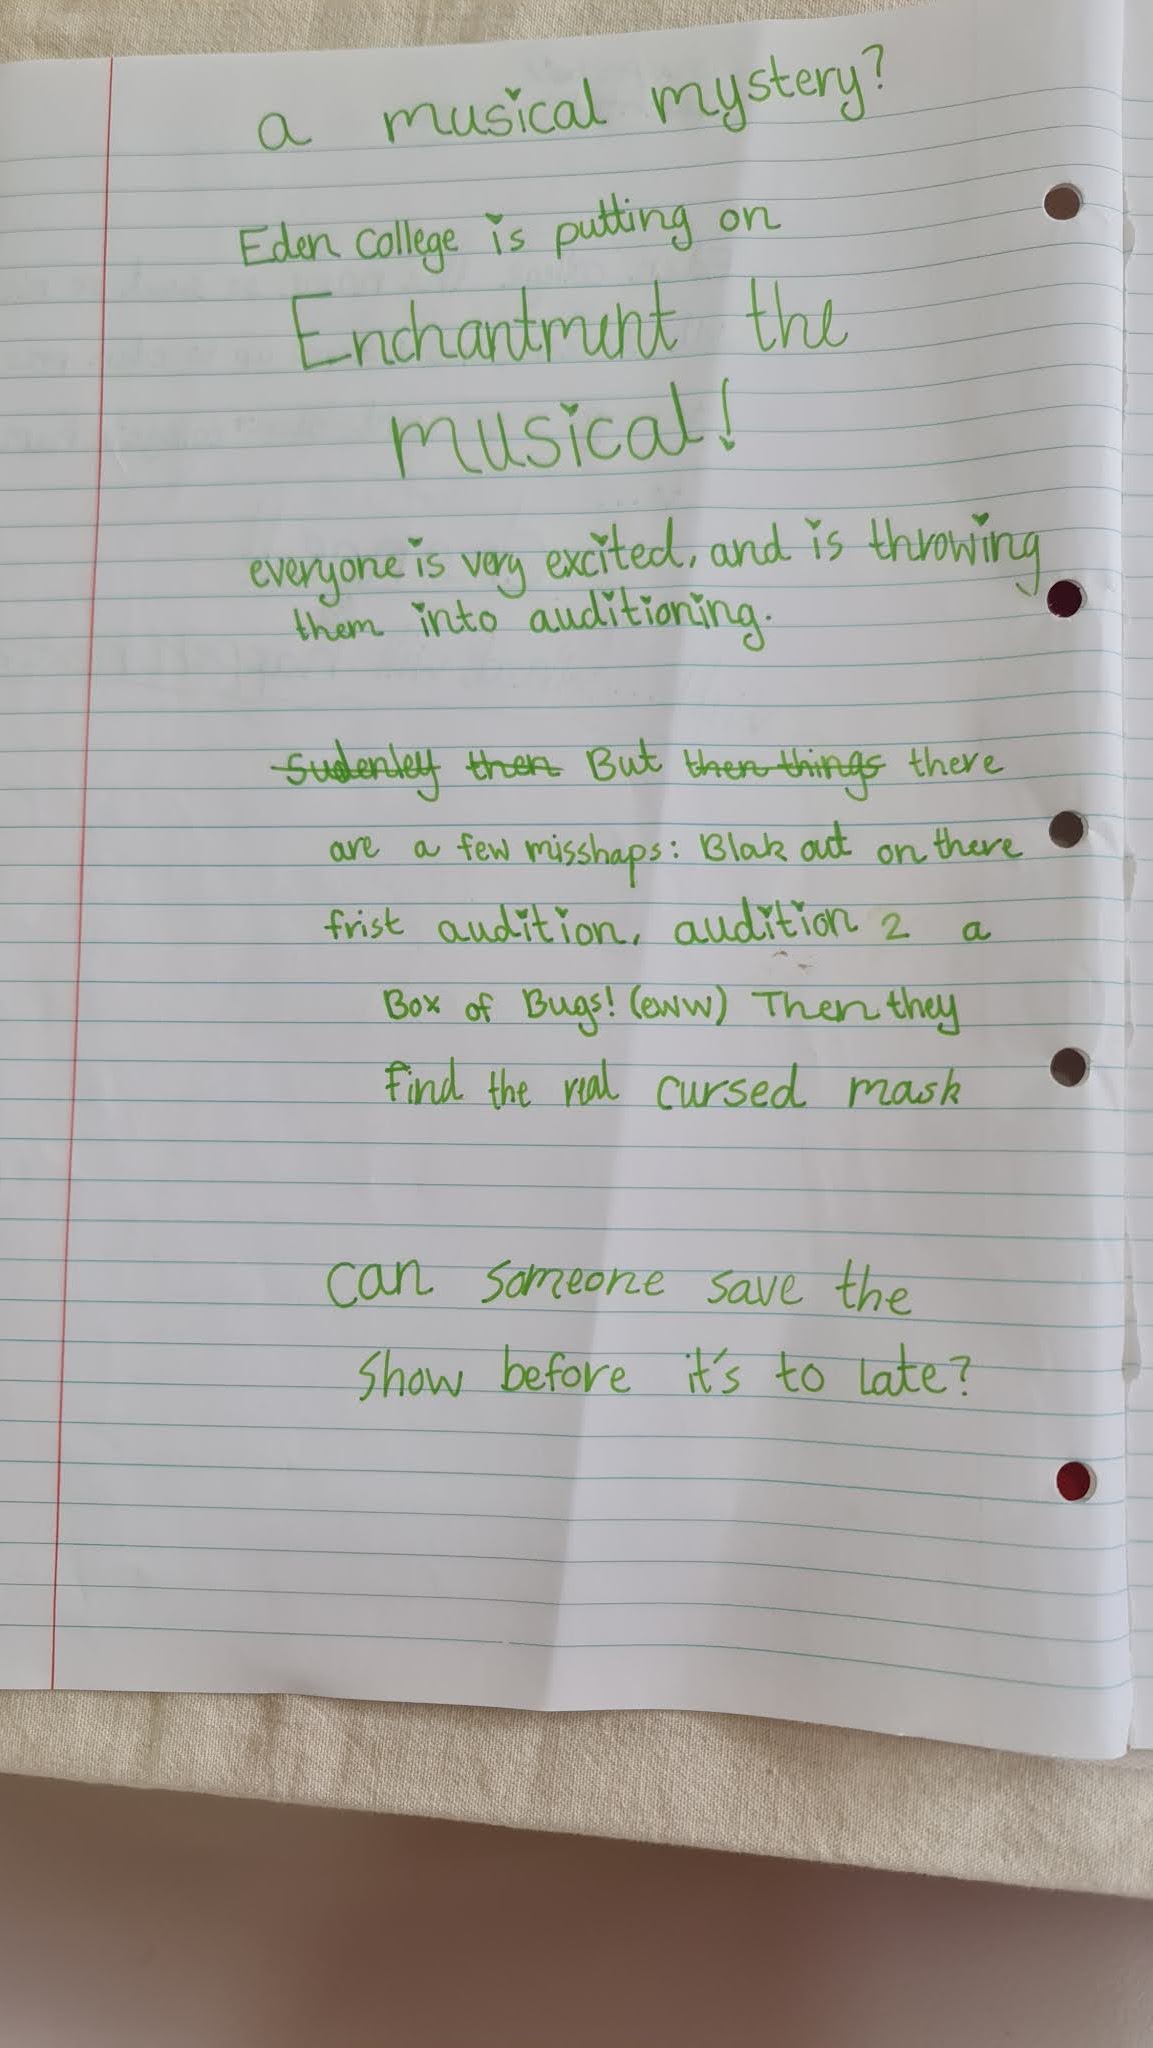 a musical mystery?
Eden college is putting on
Enchantment the
musical!
everyone is very excited, and is throwing
them into auditioning.
Sudenley then But then things there
are a few misshaps: Blak out on there
frist audition, audition 2 a
Box of Bugs! (eww) Then they
find the real cursed mask
can someone save the
show before it's to late?